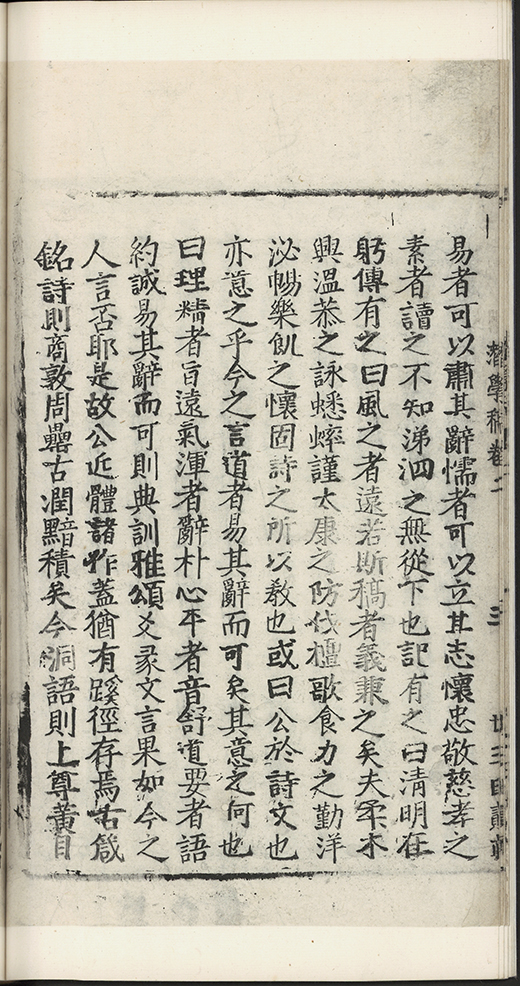 潛學稿卷之
易者可以肅其辭懦者可以立其志懷忠敬慈孝之
素者讀之不知涕泗之無從下也記有之曰清明在
躬傳有之曰風之者遠若斯稿者義兼之矣夫柔木
興溫恭之詠蟋蟀謹太康之防伐檀歌食力之勤洋
泌暢樂飢之懷固詩之所以教也或曰公於詩文也
亦意之乎今之言道者易其辭而可矣其意之何也
曰理精者旨遠氣渾者辭朴心平者音舒道要者語
約誠易其辭而可則典訓雅頌爻彖文言果如今之
人言否耶是故公近體諸作蓋猶有蹊徑存焉古箴
銘詩則商敦周罍古潤黯積矣今洞語則上尊黃目